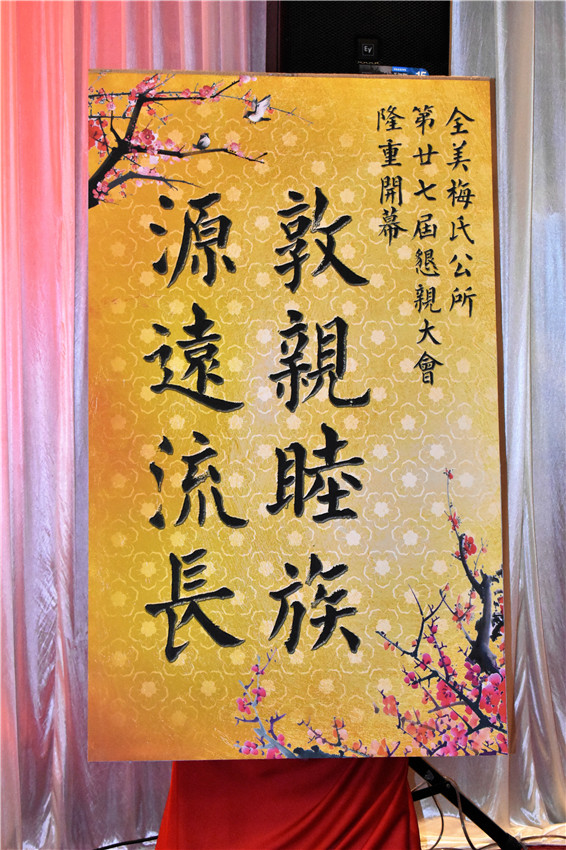 全美梅氏公所
第廿七屆懇親大會
隆重開幕
敦親睦族
源遠流長
EV